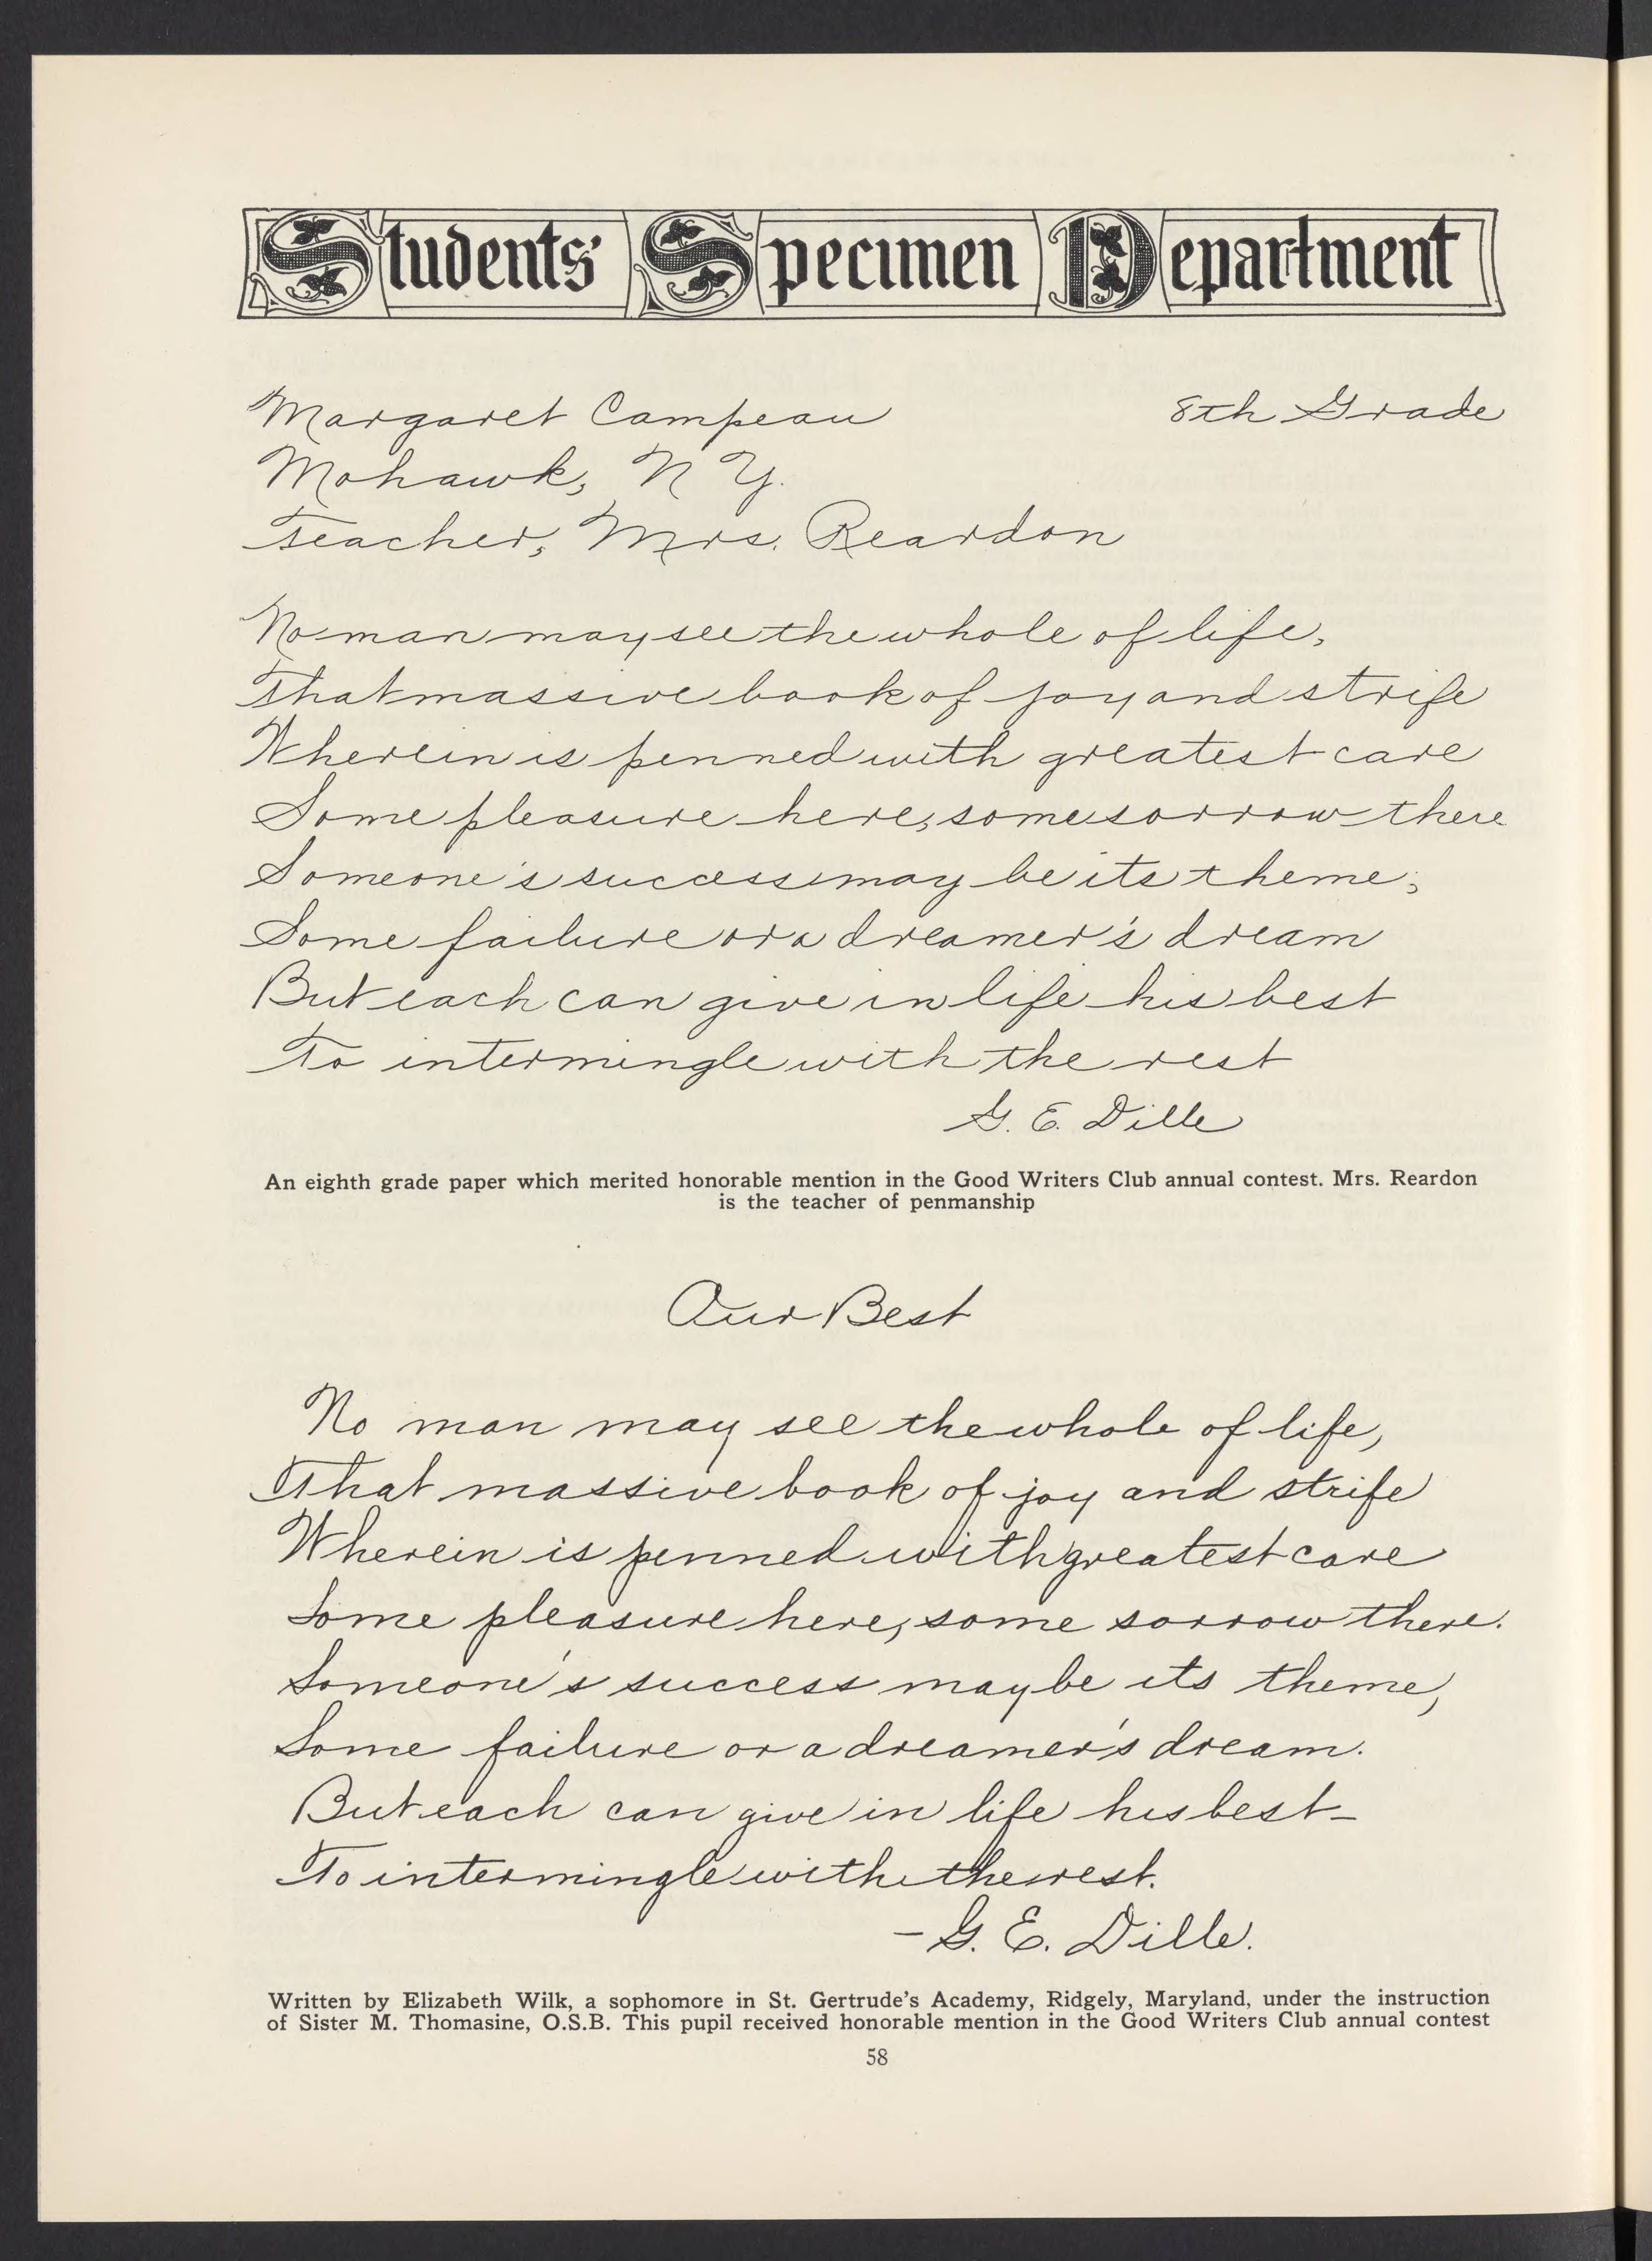 Students' Specimen Department
Margaret Campeau 8th Grade
Mohawk, N Y.
Teacher, Mrs. Reardon
No man may see the whole of life,
That massive book of joy and strife
Wherein is penned with greatest care
Some pleasure here, some sorrow there
Someone's success may be its theme;
Some failure or a dreamer's dream
But each can give in life his best
To intermingle with the rest
G. E. Dille
An eighth grade paper which merited honorable mention in the Good Writers Club annual contest. Mrs. Reardon
is the teacher of penmanship
Our Best
No man may see the whole of life,
That massive book of joy and strife
Wherein is penned with greatest care
Some pleasure here, some sorrow there.
Someone's success may be its theme,
Some failure or a dreamer's dream.
But each can give in life his best—
To intermingle with the rest.
— G. E. Dille.
Written by Elizabeth Wilk, a sophomore in St. Gertrude's Academy, Ridgely, Maryland, under the instruction
of Sister M. Thomasine, O.S.B. This pupil received honorable mention in the Good Writers Club annual contest
58